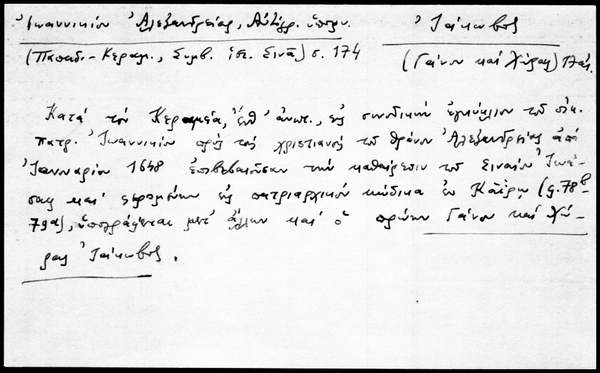 Ἰωαννικίου Ἀλεξανδρείας,
Ἰάκωβος
(Παπαδ.-Κεραμ., Συμβ. ἱστ. Σινᾶ) σ. 174
(Γάνου καὶ Χώρας) 17 αἰ.
Κατὰ τὸν Κεραμέα, ἔνθ' ἀνωτ., εἰς συνοδικὴν ἐγκύκλιον τοῦ οἰκ.
πατρ. Ἰωαννικίου πρὸς τοὺς χριστιανοὺς τοῦ θρόνου Ἀλεξανδρείας ἀπὸ
Ἰανουαρίου 1648 ἐπιβεβαιοῦσαν τὴν καθαίρεσιν τοῦ Σιναίου Ἰωά-
σαφ καὶ εἰς πατριαρχικὸν κώδικα ἐν Καΐρῳ (φ. 78β
79α), ὑπογράφεται μετ' ἄλλων καὶ ὁ πρώην Γάνου καὶ Χώ-
ρας Ἰάκωβος.